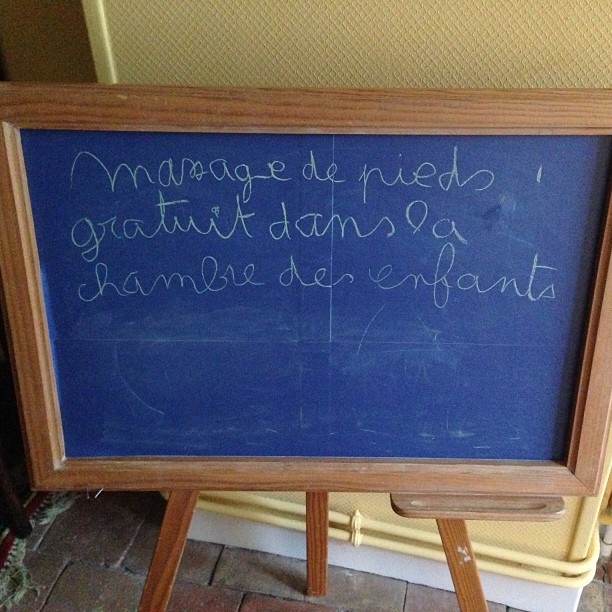 massage de pieds
gratuit dans la
chambre des enfants